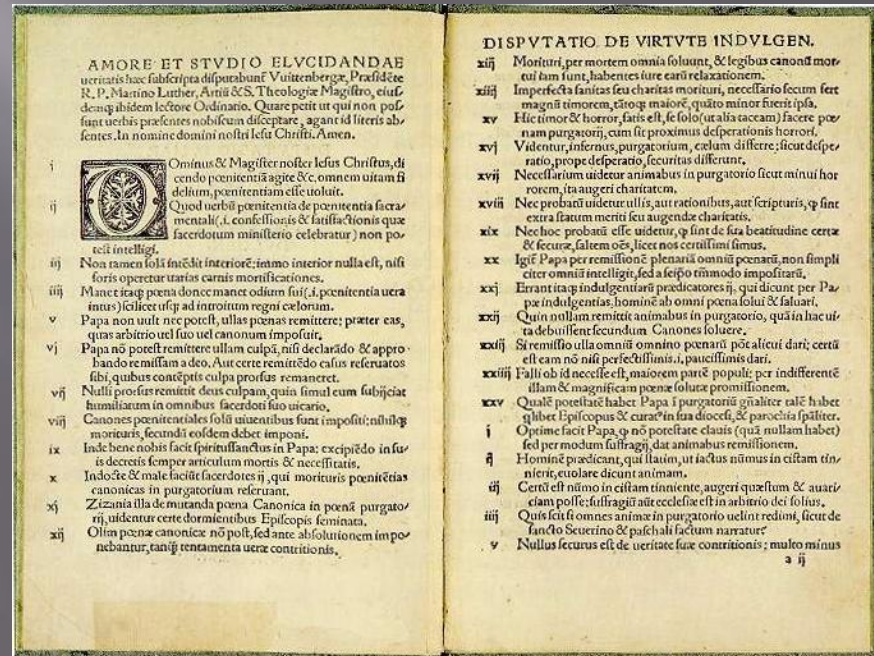 AMORE ET STVDIO ELVCIDANDAE
ueritatis hæc subscripta disputabunť Vuittenbergæ, Præsidẽte
R. P. Martino Luther, Artiũ & S. Theologiæ Magistro, eius/
demq; ibidem lectore Ordinario. Quare petit ut qui non pos/
sunt uerbis præsentes nobiscum disceptare, agant id literis ab/
sentes. In nomine domini nostri Iesu Christi. Amen.
i Ominus & Magister noster Iesus Christus, di
cendo pœnitentiã agite &c. omnem uitam fi
delium, pœnitentiam esse uoluit.
ij Quod uerbũ pœnitentia de pœnitentia sacra/
mentali(.i. confessionis & satisfactionis quæ
sacerdotum ministerio celebratur) non po/
test intelligi.
iij Non tamen solã intẽdit interiorẽ; immo interior nulla est, nisi
foris operetur uarias carnis mortificationes.
iiij Manet itaq; pœna donec manet odium sui(.i. pœnitentia uera
intus) scilicet usq; ad introitum regni cælorum.
v Papa non uult nec potest, ullas pœnas remittere; præter eas,
quas arbitrio uel suo uel canonum imposuit.
vj Papa nõ potest remittere ullam culpã, nisi declarãdo & appro
bando remissam a deo. Aut certe remittẽdo casus reseruatos
sibi, quibus contẽptis culpa prorsus remaneret.
vij Nulli prorsus remittit deus culpam, quin simul eum subijciat
humiliatum in omnibus sacerdoti suo uicario.
viij Canones pœnitentiales solũ uiuentibus sunt impositi; nihilq;
morituris, secundũ eosdem debet imponi.
ix Inde bene nobis facit spiritussanctus in Papa: excipiẽdo in su/
is decretis semper articulum mortis & necessitatis.
x Indocte & male faciũt sacerdotes ij, qui morituris pœnitẽtias
canonicas in purgatorium reseruant.
xj Zizania illa de mutanda pœna Canonica in pœnã purgato/
rij, uidentur certe dormientibus Episcopis seminata.
xij Olim pœnæ canonicæ nõ post, sed ante absolutionem impo/
nebantur, tanq̃ tentamenta ueræ contritionis.
DISPVTATIO DE VIRTVTE INDVLGEN.
xiij Morituri, per mortem omnia soluunt, & legibus canonũ mor/
tui iam sunt, habentes iure earũ relaxationem.
xiiij Imperfecta sanitas seu charitas morituri, necessario secum fert
magnũ timorem, tãtoq; maiorẽ, quãto minor fuerit ipsa.
xv Hic timor & horror, satis est, se solo(ut alia taceam) facere pœ/
nam purgatorij, cum sit proximus desperationis horrori.
xvj Videntur, infernus, purgatorium, cælum differre; sicut despe/
ratio, prope desperatio, securitas differunt.
xvij Necessarium uidetur animabus in purgatorio sicut minui hor
rorem, ita augeri charitatem.
xviij Nec probatũ uidetur ullis, aut rationibus, aut scripturis, q̃ sint
extra statum meriti seu augendæ charitatis.
xix Nec hoc probatũ esse uidetur, q̃ sint de sua beatitudine certæ
& securæ, saltem oẽs, licet nos certissimi simus.
xx Igiť Papa per remissionẽ plenariã omniũ pœnarũ, non simpli
citer omniũ intelligit, sed a seipo tm̃modo impositarũ.
xxj Errant itaq; indulgentiarũ prædicatores ij, qui dicunt per Pa/
pæ indulgentias, hominẽ ab omni pœna solui & saluari.
xxij Quin nullam remittit animabus in purgatorio, quã in hac ui/
ta debuissent secundum Canones soluere.
xxiij Si remissio ulla omniũ omnino pœnarũ põt alicui dari; certũ
est eam nõ nisi perfectissimis.i. paucissimis dari.
xxiiij Falli ob id necesse est, maiorem partẽ populi; per indifferentẽ
illam & magnificam pœnæ solutæ promissionem.
xxv Qualẽ potestatẽ habet Papa ĩ purgatoriũ gñaliter talẽ habet
q̃libet Episcopus & curatꝰ in sua diocesi, & parochia sp̃aliter.
i Optime facit Papa, q̃ nõ potestate clauis (quã nullam habet)
sed per modum suffragij, dat animabus remissionem.
ij Hominẽ prædicant, qui statim, ut iactus nũmus in cistam tin/
nierit, euolare dicunt animam.
iij Certũ est nũmo in cistam tinniente, augeri quæstum & auari/
ciam posse; suffragiũ aũt ecclesiæ est in arbitrio dei solius.
iiij Quis scit si omnes animæ in purgatorio uelint redimi, sicut de
sancto Seuerino & paschali factum narratur?
v Nullus securus est de ueritate suæ contritionis; multo minus
a ij